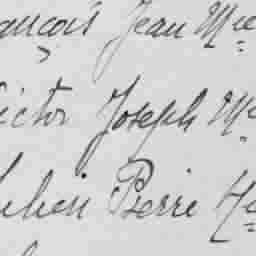 ançois Jean Mie
ictor Joseph M
Pierre H